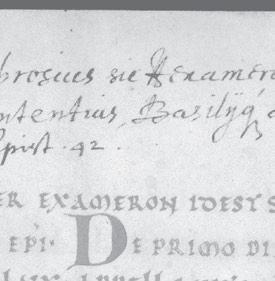 brosius sic Hexamero
ntentius, Basilij
Epist. 42.
ER EXAMERON IDEST S
EPI· DE PRIMO DI